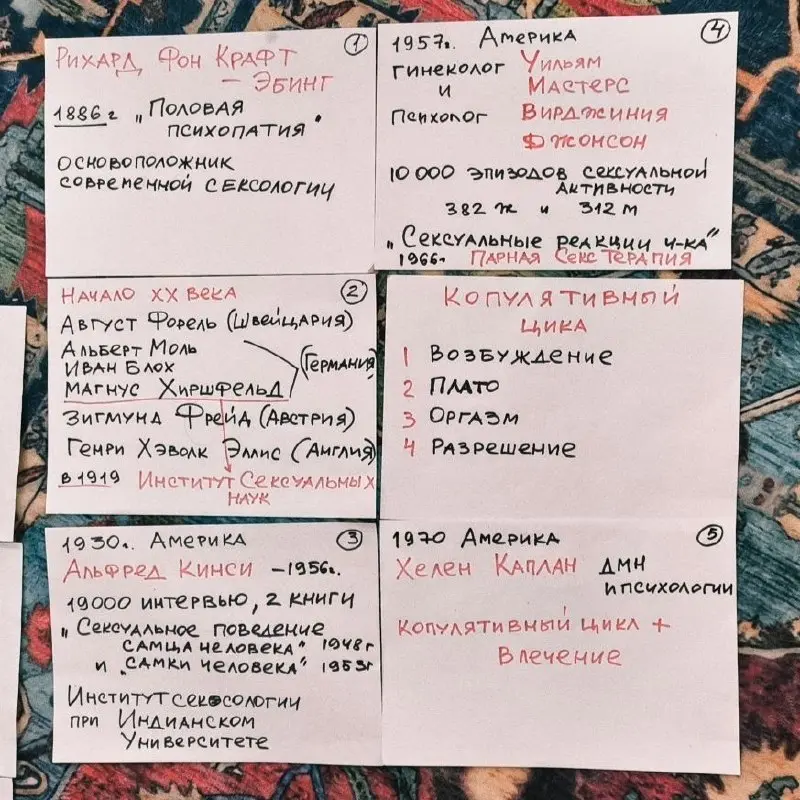 1
Рихард фон Крафт
- Эбинг
1886г „Половая
психопатия"
основоположник
современной сексологии
2
Начало XX века
Август Форель (Швейцария)
Альберт Моль
Иван Блох
(Германия)
Магнус Хиршфельд
Зигмунд Фрейд (Австрия)
Генри Хэволк Эллис (Англия)
в 1919 Институт Сексуальных
наук
3
1930г. Америка
Альфред Кинси - 1956г.
19000 интервью, 2 книги
„Сексуальное поведение
самца человека" 1948г
и „самки человека" 1953г
Институт сексологии
при Индианском
Университете
4
1957г. Америка
гинеколог Уильям
и Мастерс
психолог Вирджиния
Джонсон
10 000 эпизодов сексуальной
активности
382 ж и 312 м
„Сексуальные реакции ч-ка"
1966г. Парная Секс Терапия
Копулятивный
цикл
1 Возбуждение
2 Плато
3 Оргазм
4 Разрешение
5
1970 Америка
Хелен Каплан ДМН
и психологии
копулятивный цикл +
Влечение